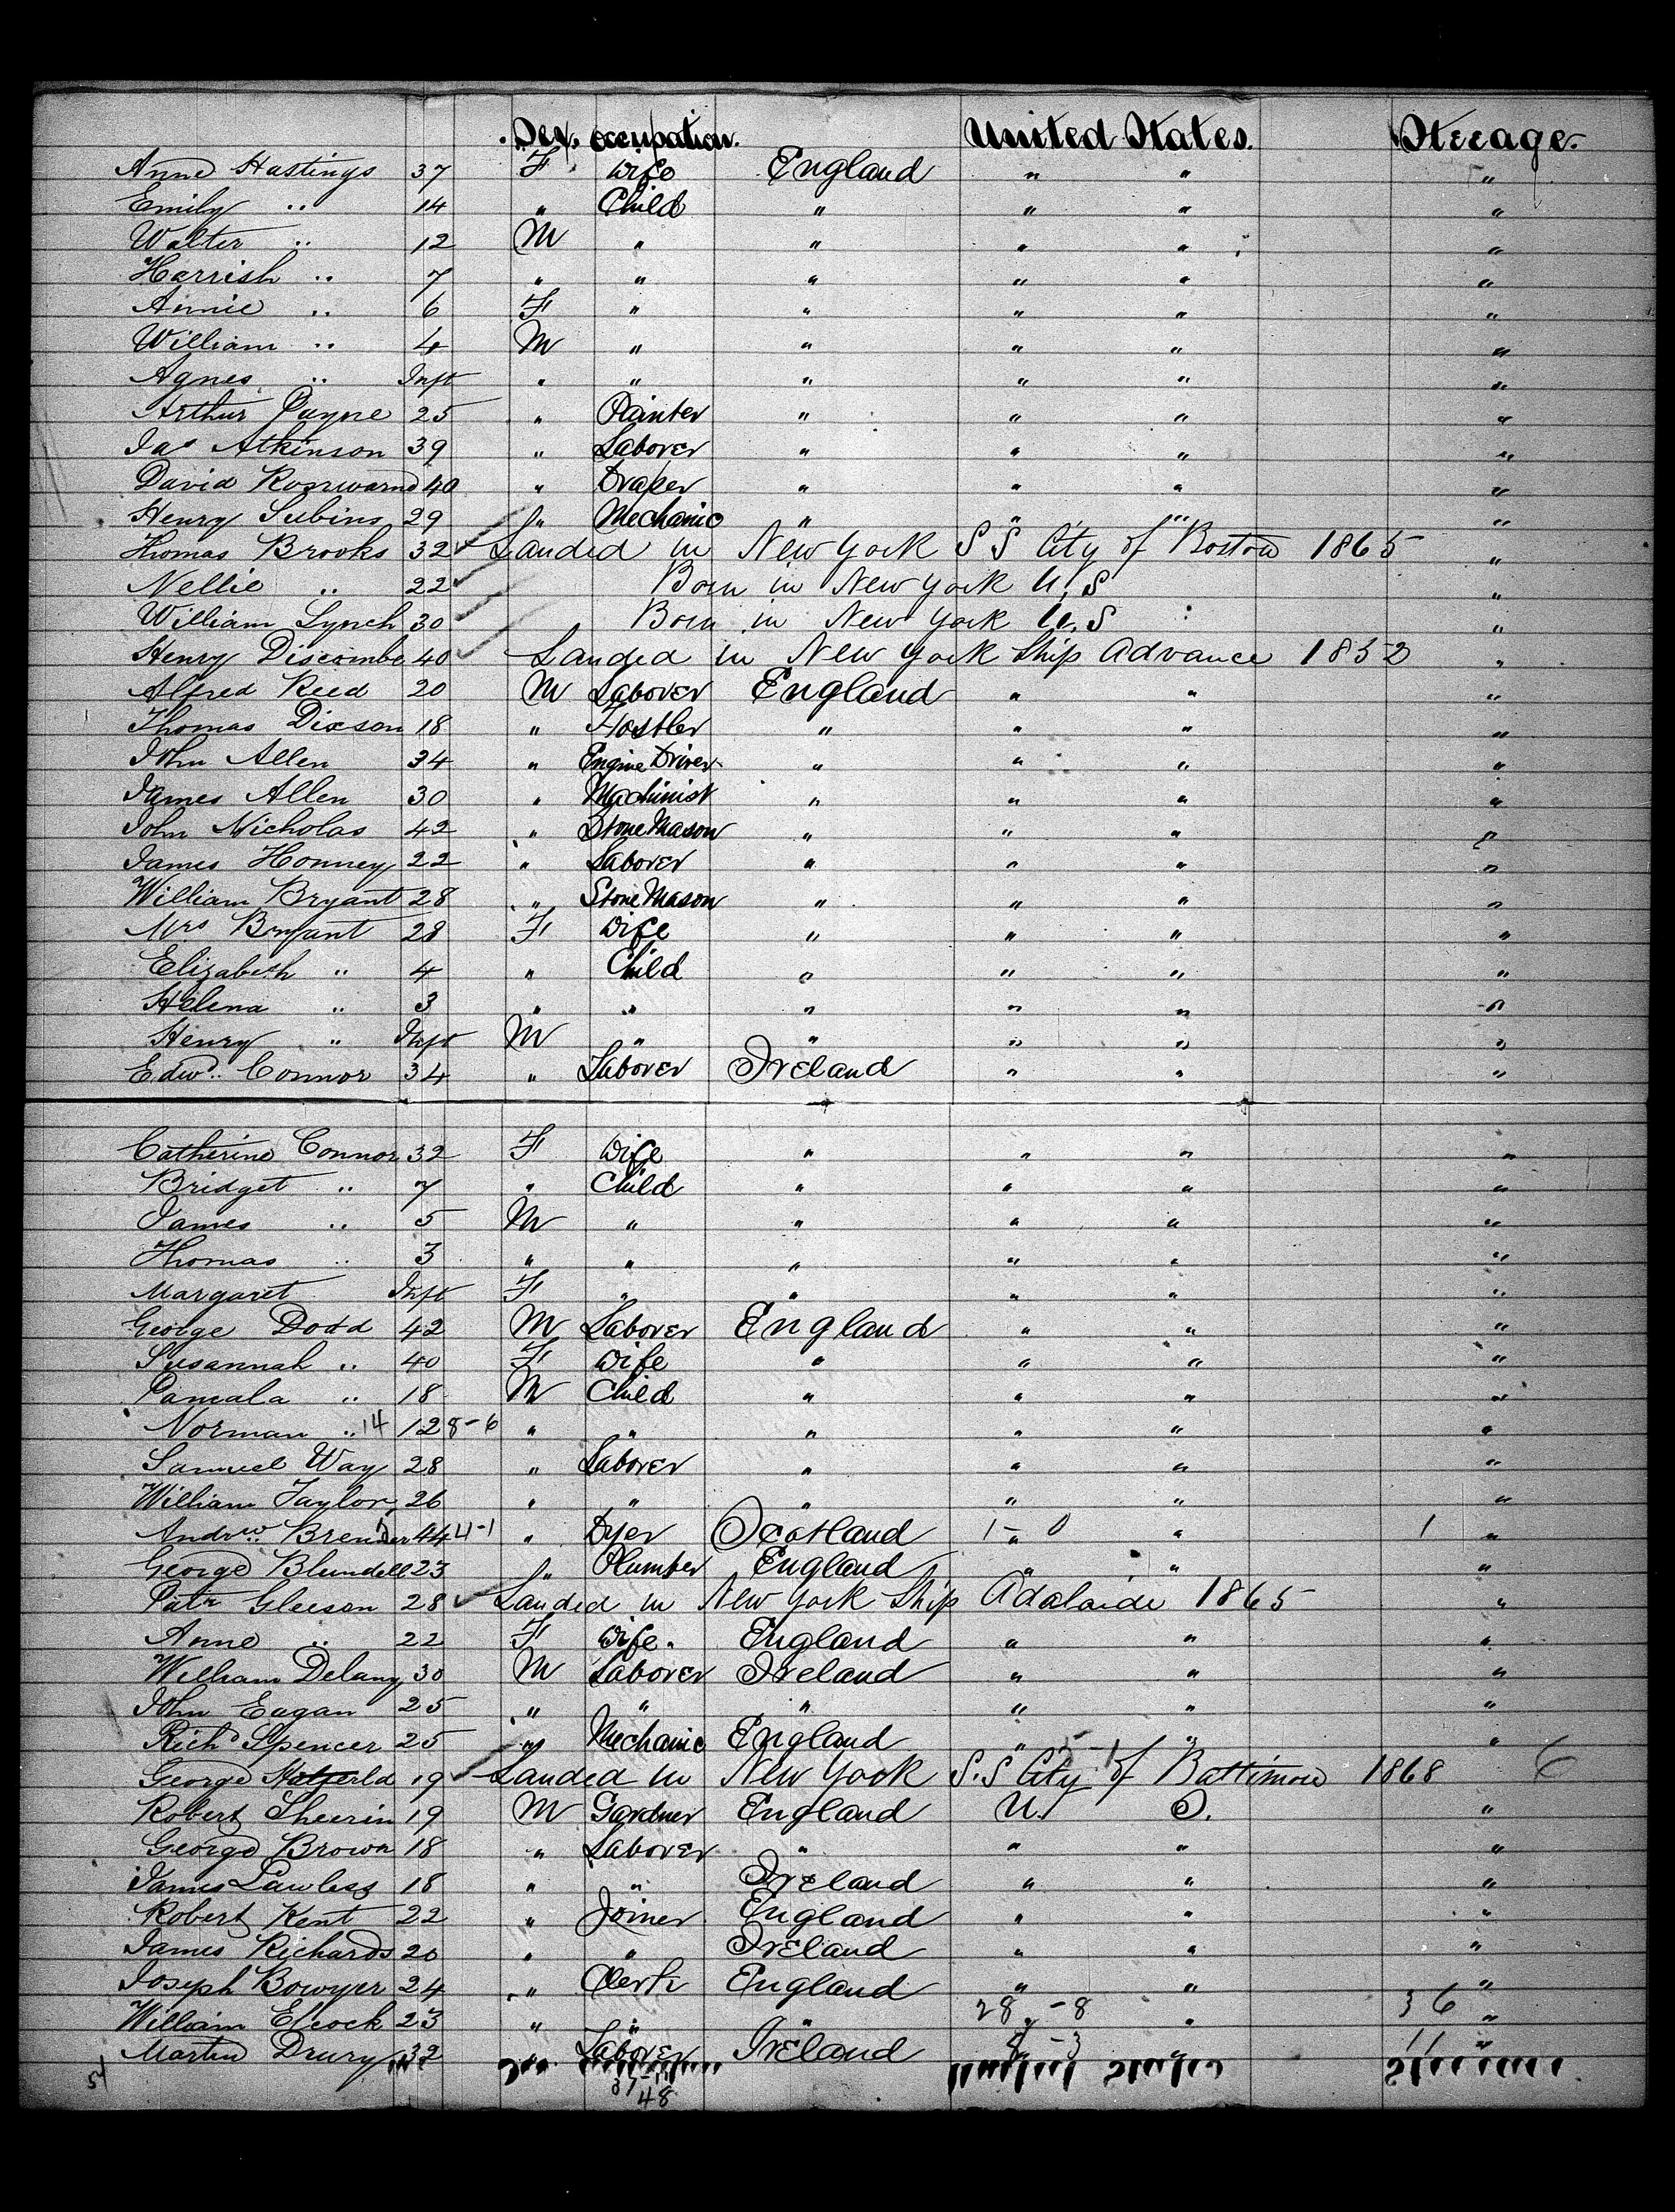 Sex. occupation. United States. Steerage.
Anne Hastings 37 F. wife England " " "
Emily " 14 " Child " " " "
Walter " 12 M " " " " "
Harrish " 7 " " " " " "
Annie " 6 F " " " " "
William " 4 M " " " " "
Agnes " Inft " " " " " "
Arthur Payne 25 " Painter " " " "
Jas Atkinson 39 " Laborer " " " "
David 40 " Draper " " " "
Henry Subins 29 " Mechanic " " " "
Thomas Brooks 32 ✓ Landed in New York S S City of Boston 1865 "
Nellie " 22 ✓ Born in New York U.S "
William Lynch 30 ✓ Born in New York U.S "
Henry Discombe 40 ✓ Landed in New York Ship Advance 1852 "
Alfred Reed 20 M Laborer England " " "
Thomas Dixson 18 " Hostler " " " "
John Allen 34 " Engine Driver " " " "
James Allen 30 " Machinist " " " "
John Nicholas 42 " Stone Mason " " " "
James Honney 22 " Laborer " " " "
William Bryant 28 " Stone Mason " " " "
Mrs Bryant 28 F wife " " " "
Elizabeth " 4 " Child " " " "
Helena " 3 " " " " " "
Henry " Inft M " " " " "
Edwd. Connor 34 " Laborer Ireland " " "
Catherine Connor 32 F wife " " " "
Bridget " 7 " Child " " " "
James " 5 M " " " " "
Thomas " 3 " " " " " "
Margaret Inft F " " " " "
George Dodd 42 M Laborer England " " "
Susannah " 40 F wife " " " "
Pamala " 18 M Child " " " "
Norman " 14 12 8-6 " " " " " "
Samuel Way 28 " Laborer " " " "
William Taylor 26 " " " " " "
Andrw. Brender 44 4-1 " Dyer Scotland 1-0 " 1 "
George Blundell 23 " Plumber England " " "
Patk Gleeson 28 ✓ Landed in New York Ship Adalaide 1865 "
Anne " 22 F wife. England " " "
William Delany 30 M Laborer Ireland " " "
John Eagan 25 " " " " " "
Richd Spencer 25 " Mechanic England " " "
George 19 ✓ Landed in New York S.S City of Baltimore 1868 6
Robert Sheerin 19 M Gardner England U. S. "
George Brown 18 " Laborer " " " "
James Lawless 18 " " Ireland " " "
Robert Kent 22 " Joiner England " " "
James Richards 20 " " Ireland " " "
Joseph Bowyer 24 " Clerk England " " "
William Elcock 23 " " " 28-8 " 36 "
Martin Drury 32 " Laborer Ireland -3 " 11 "
54 37-11
48